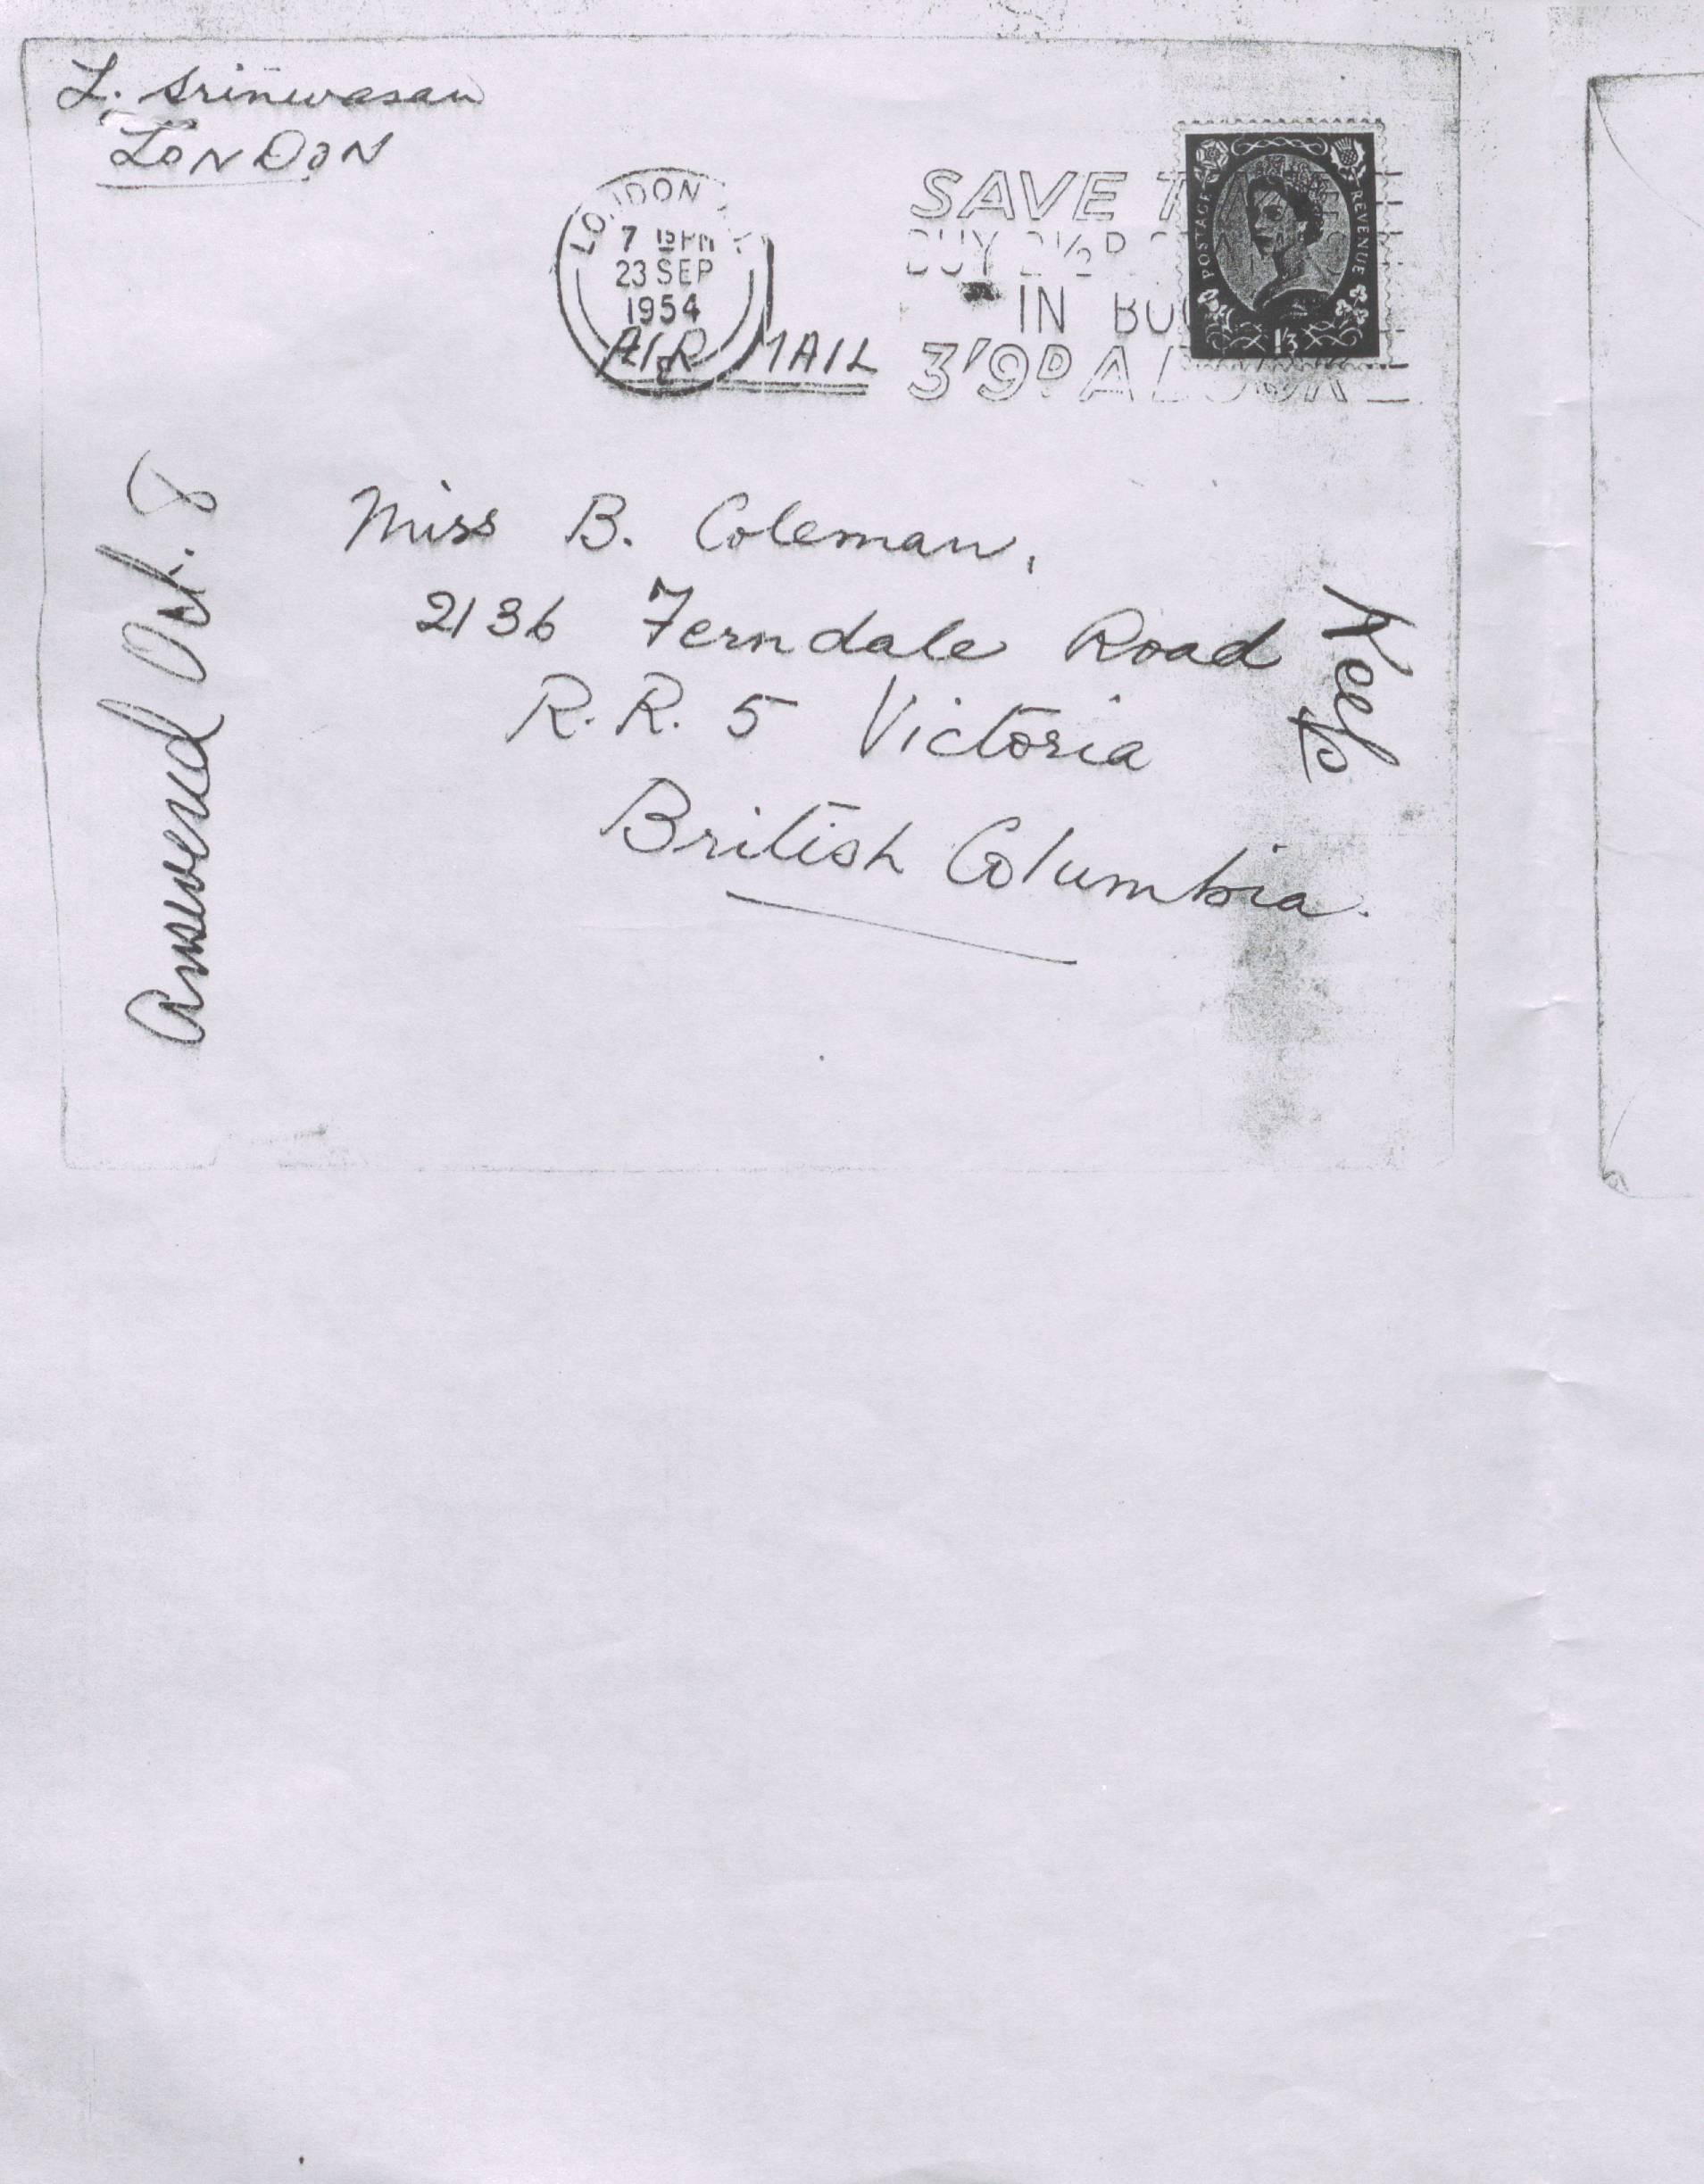 L. Srinivasan
LONDON
LONDON
7 15 PM
23 SEP
1954
AIR MAIL
SAVE
BUY 2½D
IN
3'9D A
POSTAGE
REVENUE
1/3
Miss B. Coleman,
2136 Ferndale Road
R.R. 5 Victoria
British Columbia.
Answered Oct. 8
Keep